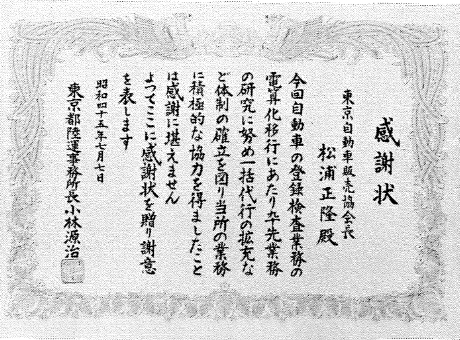 感謝状
東京自動車販売協会長
松浦正隆殿
今回自動車の登録検査業務の
電算化移行にあたり卆先業務
の研究に努め一括代行の拡充な
ど体制の確立を図り当所の業務
に積極的な協力を得ましたこと
は感謝に堪えません
よってここに感謝状を贈り謝意
を表します
昭和四十五年七月七日
東京都陸運事務所長小林源治